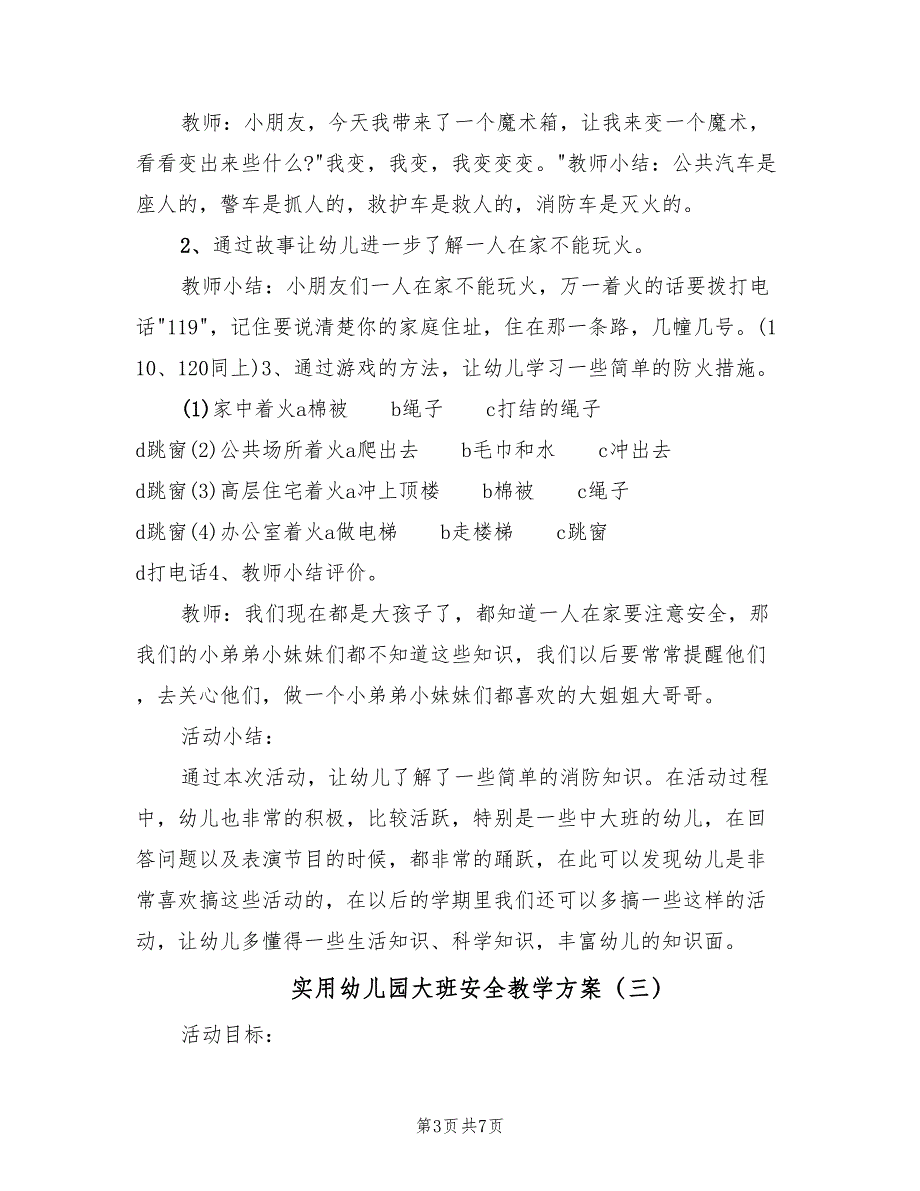 教师：小朋友，今天我带来了一个魔术箱，让我来变一个魔术，
看看变出来些什么?"我变，我变，我变变变。"教师小结：公共汽车是
座人的，警车是抓人的，救护车是救人的，消防车是灭火的。
2、通过故事让幼儿进一步了解一人在家不能玩火。
教师小结：小朋友们一人在家不能玩火，万一着火的话要拨打电
话"119"，记住要说清楚你的家庭住址，住在那一条路，几幢几号。(1
10、120同上)3、通过游戏的方法，让幼儿学习一些简单的防火措施。
(1)家中着火a棉被 b绳子 c打结的绳子
d跳窗(2)公共场所着火a爬出去 b毛巾和水 c冲出去
d跳窗(3)高层住宅着火a冲上顶楼 b棉被 c绳子
d跳窗(4)办公室着火a做电梯 b走楼梯 c跳窗
d打电话4、教师小结评价。
教师：我们现在都是大孩子了，都知道一人在家要注意安全，那
我们的小弟弟小妹妹们都不知道这些知识，我们以后要常常提醒他们
，去关心他们，做一个小弟弟小妹妹们都喜欢的大姐姐大哥哥。
活动小结：
通过本次活动，让幼儿了解了一些简单的消防知识。在活动过程
中，幼儿也非常的积极，比较活跃，特别是一些中大班的幼儿，在回
答问题以及表演节目的时候，都非常的踊跃，在此可以发现幼儿是非
常喜欢搞这些活动的，在以后的学期里我们还可以多搞一些这样的活
动，让幼儿多懂得一些生活知识、科学知识，丰富幼儿的知识面。
实用幼儿园大班安全教学方案（三）
活动目标：
第3页共7页